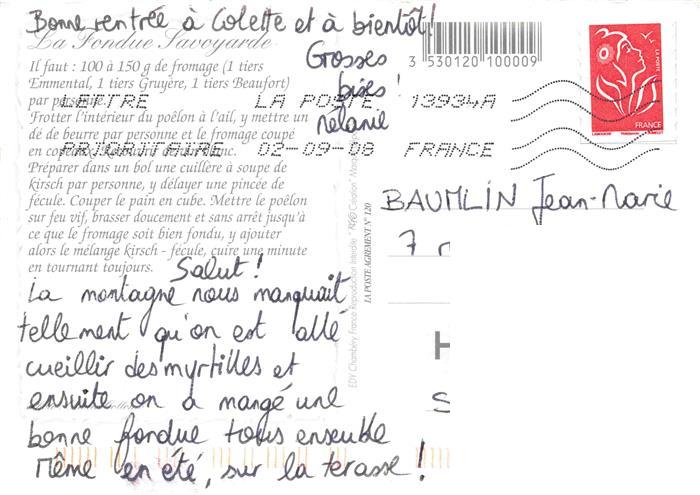 Bonne rentrée à Colette et à bientôt!
La Fondue Savoyarde
Grosses
bises!
Mélanie
3 530120 100009
LA POSTE
FRANCE
Il faut : 100 à 150 g de fromage (1 tiers
Emmental, 1 tiers Gruyère, 1 tiers Beaufort)
par personne.
LETTRE LA POSTE 13934A
Frotter l'intérieur du poêlon à l'ail, y mettre un
dé de beurre par personne et le fromage coupé
en vin blanc.
PRIORITAIRE 02-09-08 FRANCE
Préparer dans un bol une cuillère à soupe de
kirsch par personne, y délayer une pincée de
fécule. Couper le pain en cube. Mettre le poêlon
sur feu vif, brasser doucement et sans arrêt jusqu'à
ce que le fromage soit bien fondu, y ajouter
alors le mélange kirsch - fécule, cuire une minute
en tournant toujours.
Salut!
La montagne nous manquait
tellement qu'on est allé
cueillir des myrtilles et
ensuite on a mangé une
bonne fondue tous ensemble
Même en été, sur la terasse!
EDY Chambéry France Reproduction Interdite
LA POSTE AGREMENT N° 120
BAUMLIN Jean-Marie
7 r
H
S